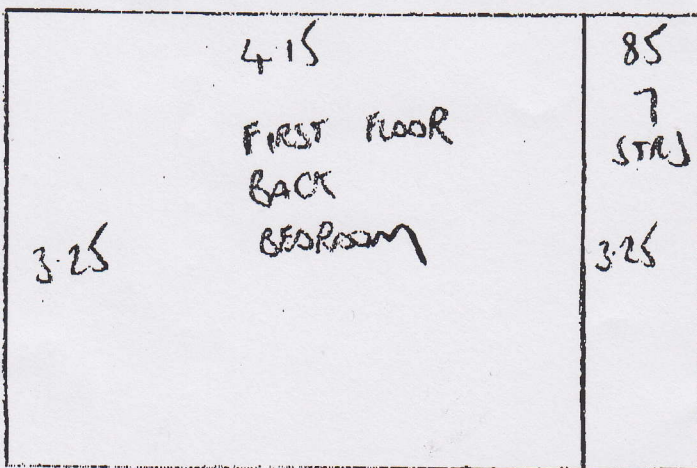 4.15
FIRST FLOOR
BACK
BEDROOM
3.25
85
7
STRS
3.25